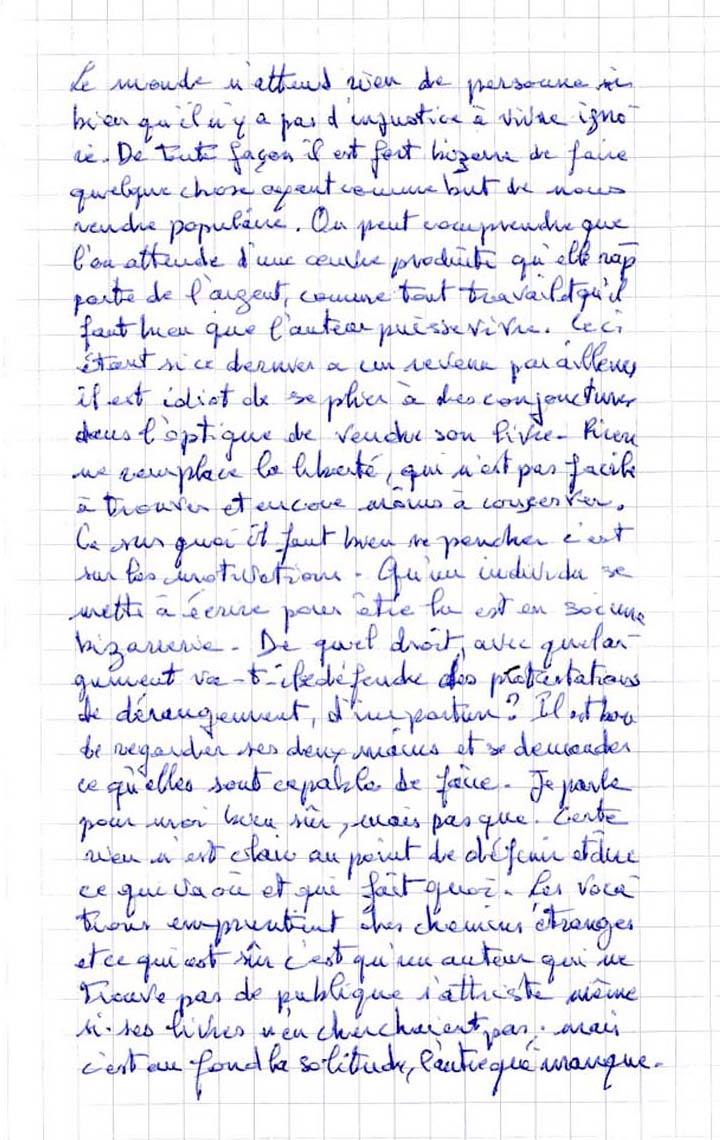 Le monde n'attend rien de personne si
bien qu'il n'y a pas d'injustice à vivre igno
ré. De toute façon il est fort bizarre de faire
quelque chose ayant comme but de nous
rendre populaire. On peut comprendre que
l'on attende d'une œuvre produite qu'elle rap
porte de l'argent, comme tout travail et qu'il
faut bien que l'auteur puisse vivre. Ceci
étant si ce dernier a un revenu par ailleurs
il est idiot de se plier à des conjonctures
dans l'optique de vendre son livre. Rien
ne remplace la liberté, qui n'est pas facile
à trouver et encore moins à conserver.
Ce sur quoi il faut bien se pencher c'est
sur les motivations. Qu'un individu se
mette à écrire pour être lu est en soi une
bizarrerie. De quel droit, avec quel ar-
gument va-t-il défendre des protestations
de dérangement, d'importun? Il est bon
de regarder ses deux mains et se demander
ce qu'elles sont capable de faire. Je parle
pour moi bien sûr, mais pas que. Certe
rien n'est clair au point de définir et dire
ce qui va où et qui fait quoi. Les voca
tions empruntent des chemins étranges
et ce qui est sûr c'est qu'un auteur qui ne
trouve pas de publique s'attriste même
si ses livres n'en cherchaient pas, mais
c'est au fond la solitude, l'autre qui manque.